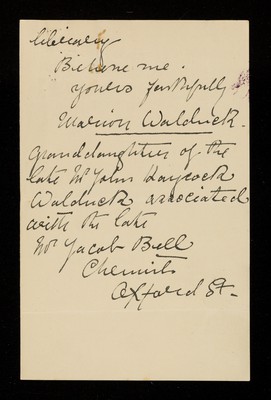 liberary
Believe me.
yours faithfully
Marion Waldrick.
Granddaughter of the
late Mr John Haycock
Waldrick associated
with the late
Mr Jacob Bell
Chemists
Oxford St.